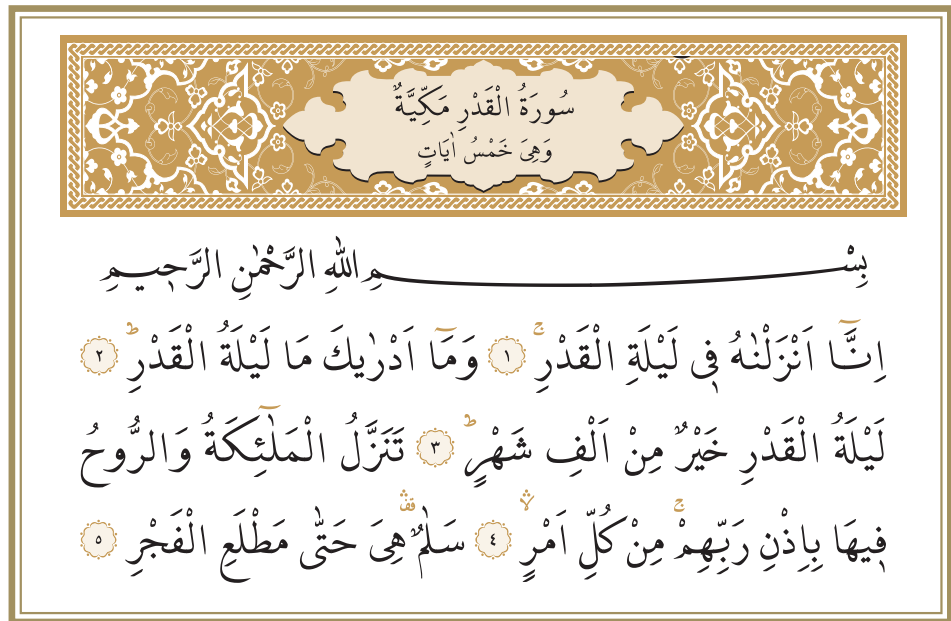 سُورَةُ الْقَدْرِ مَكِّيَّةٌ
وَهِىَ خَمْسُ اٰيَاتٍ
بِسْمِ اللّٰهِ الرَّحْمٰنِ الرَّحٖيمِ
اِنَّٓا اَنْزَلْنَاهُ فٖى لَيْلَةِ الْقَدْرِۚ ﴿١﴾ وَمَٓا اَدْرٰيكَ مَا لَيْلَةُ الْقَدْرِؕ ﴿٢﴾
لَيْلَةُ الْقَدْرِ خَيْرٌ مِنْ اَلْفِ شَهْرٍؕ ﴿٣﴾ تَنَزَّلُ الْمَلٰٓئِكَةُ وَالرُّوحُ
فٖيهَا بِاِذْنِ رَبِّهِمْۚ مِنْ كُلِّ اَمْرٍۙۛ ﴿٤﴾ سَلَامٌࣞ هِىَ حَتّٰى مَطْلَعِ الْفَجْرِ ﴿٥﴾